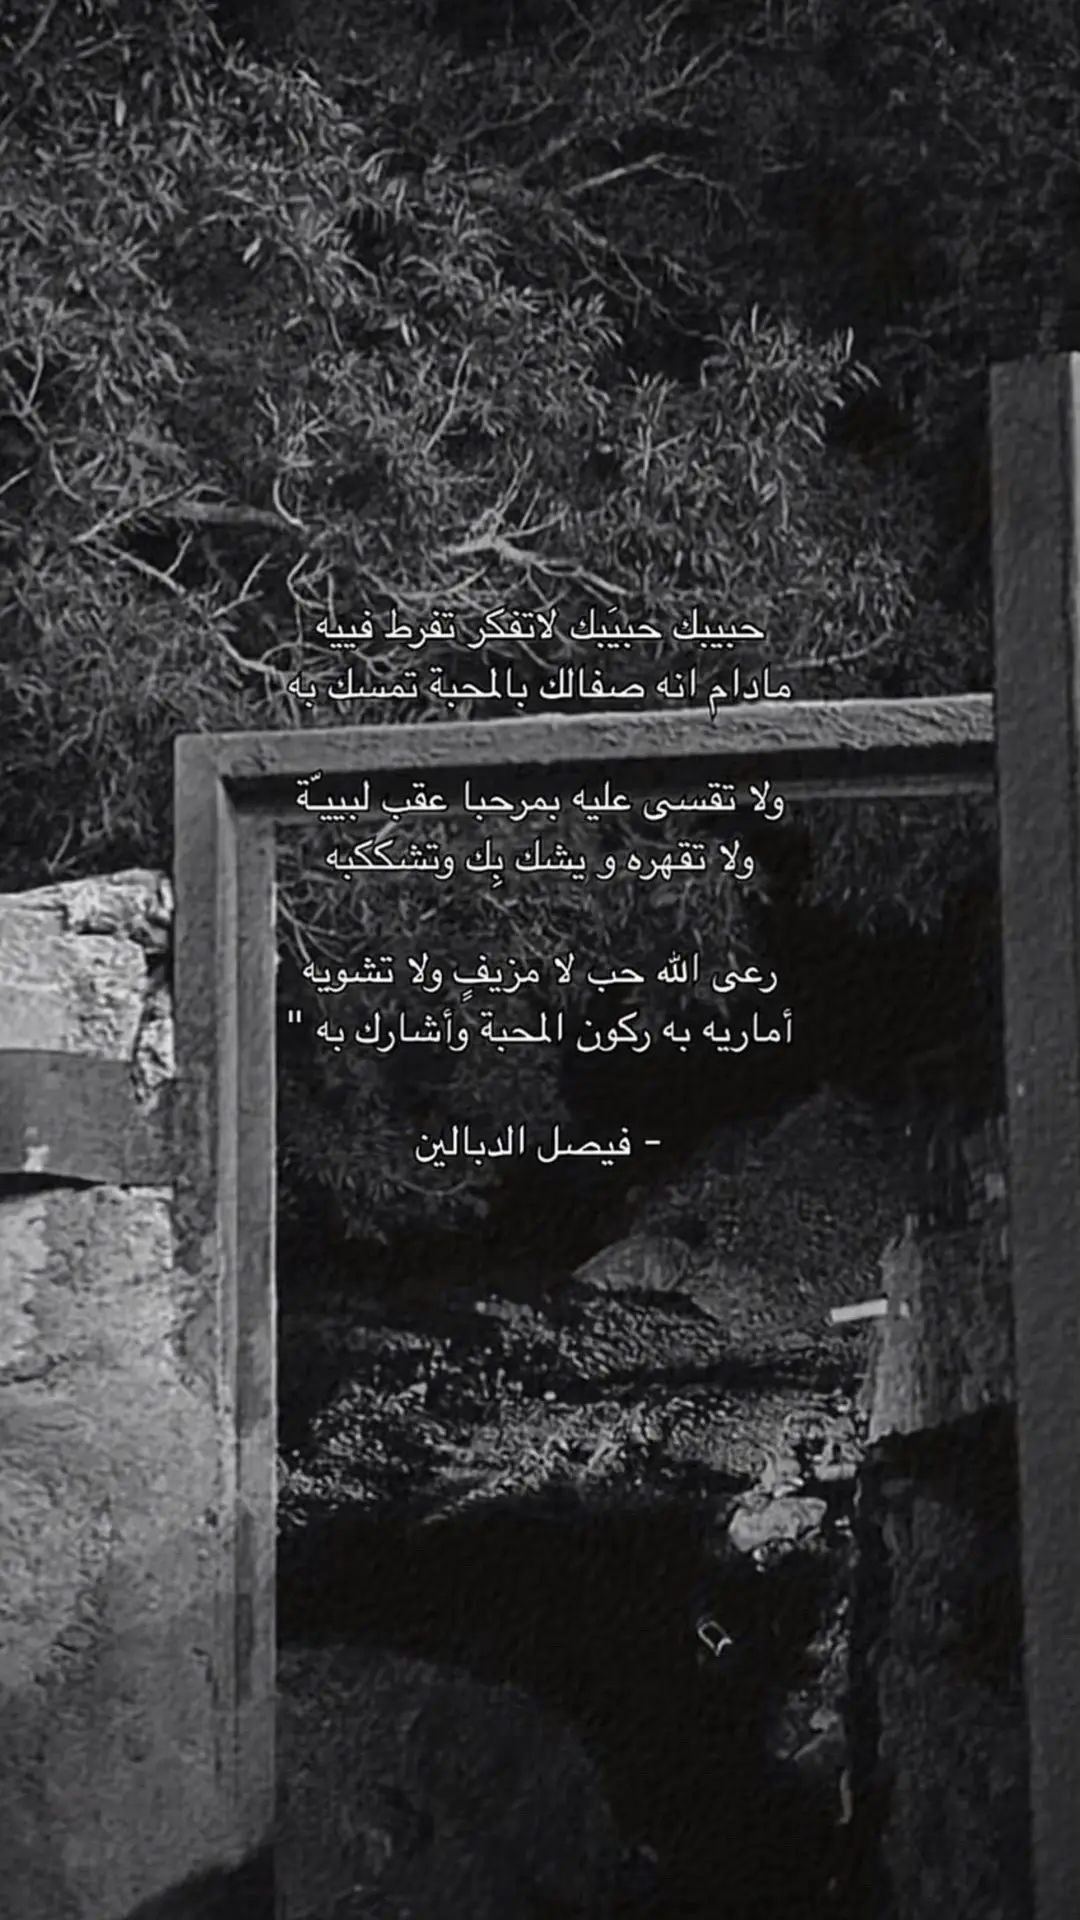 حبيبك حبيَبك لاتفكر تفرط فييه
مادام انه صفالك بالمحبة تمسك به
ولا تقسى عليه بمرحبا عقب لبييـّة
ولا تقهره و يشك بِك وتشككبه
رعى الله حب لا مزيفٍ ولا تشويه
أماريه به ركون المحبة وأشارك به "
- فيصل الدبالين